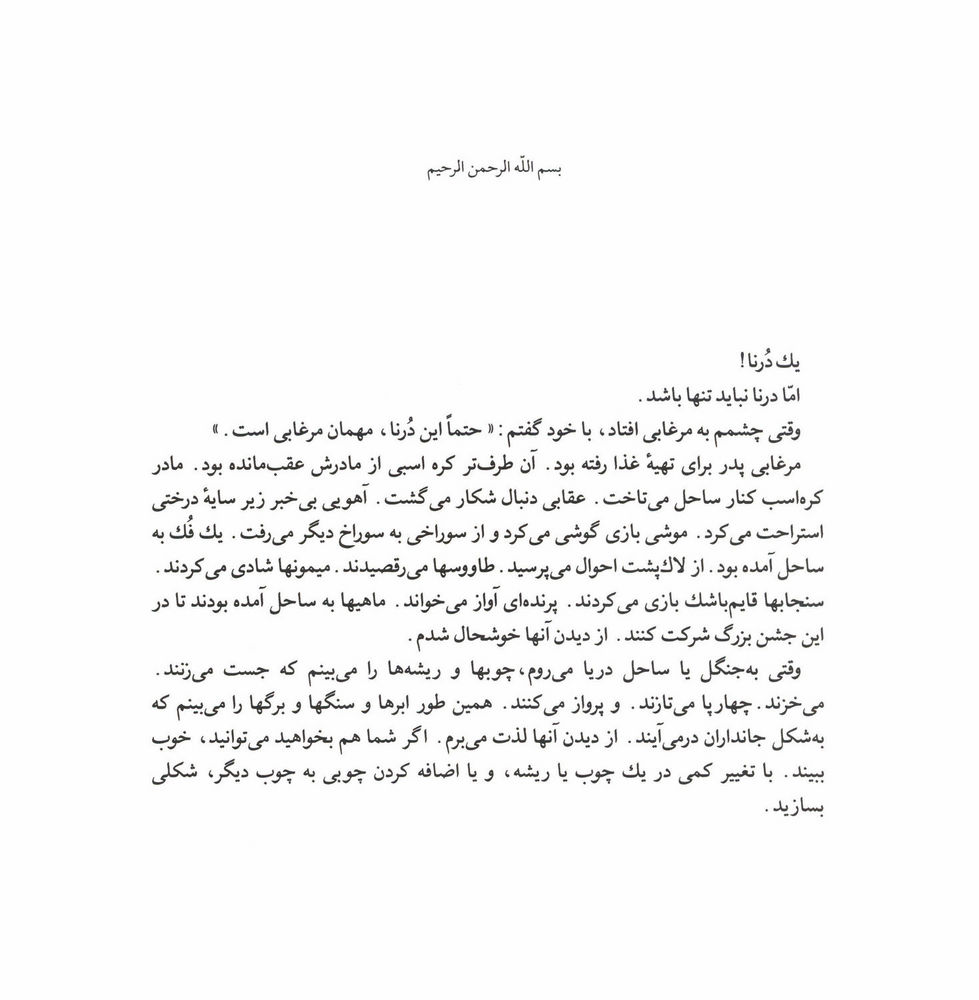 بسم اللّه الرحمن الرحیم
یك دُرنا!
امّا درنا نباید تنها باشد.
وقتی چشمم به مرغابی افتاد، با خود گفتم: «حتماً این دُرنا، مهمان مرغابی است.»
مرغابی پدر برای تهیهٔ غذا رفته بود. آن طرف‌تر کره اسبی از مادرش عقب‌مانده بود. مادر
کره‌اسب کنار ساحل می‌تاخت. عقابی دنبال شکار می‌گشت. آهویی بی‌خبر زیر سایهٔ درختی
استراحت می‌کرد. موشی بازی گوشی می‌کرد و از سوراخی به سوراخ دیگر می‌رفت. یك فُك به
ساحل آمده بود. از لاك‌پشت احوال می‌پرسید. طاووسها می‌رقصیدند. میمونها شادی می‌کردند.
سنجابها قایم‌باشك بازی می‌کردند. پرنده‌ای آواز می‌خواند. ماهیها به ساحل آمده بودند تا در
این جشن بزرگ شرکت کنند. از دیدن آنها خوشحال شدم.
وقتی به‌جنگل یا ساحل دریا می‌روم، چوبها و ریشه‌ها را می‌بینم که جست می‌زنند.
می‌خزند. چهارپا می‌تازند. و پرواز می‌کنند. همین طور ابرها و سنگها و برگها را می‌بینم که
به‌شکل جانداران درمی‌آیند. از دیدن آنها لذت می‌برم. اگر شما هم بخواهید می‌توانید، خوب
ببیند. با تغییر کمی در یك چوب یا ریشه، و یا اضافه کردن چوبی به چوب دیگر، شکلی
بسازید.